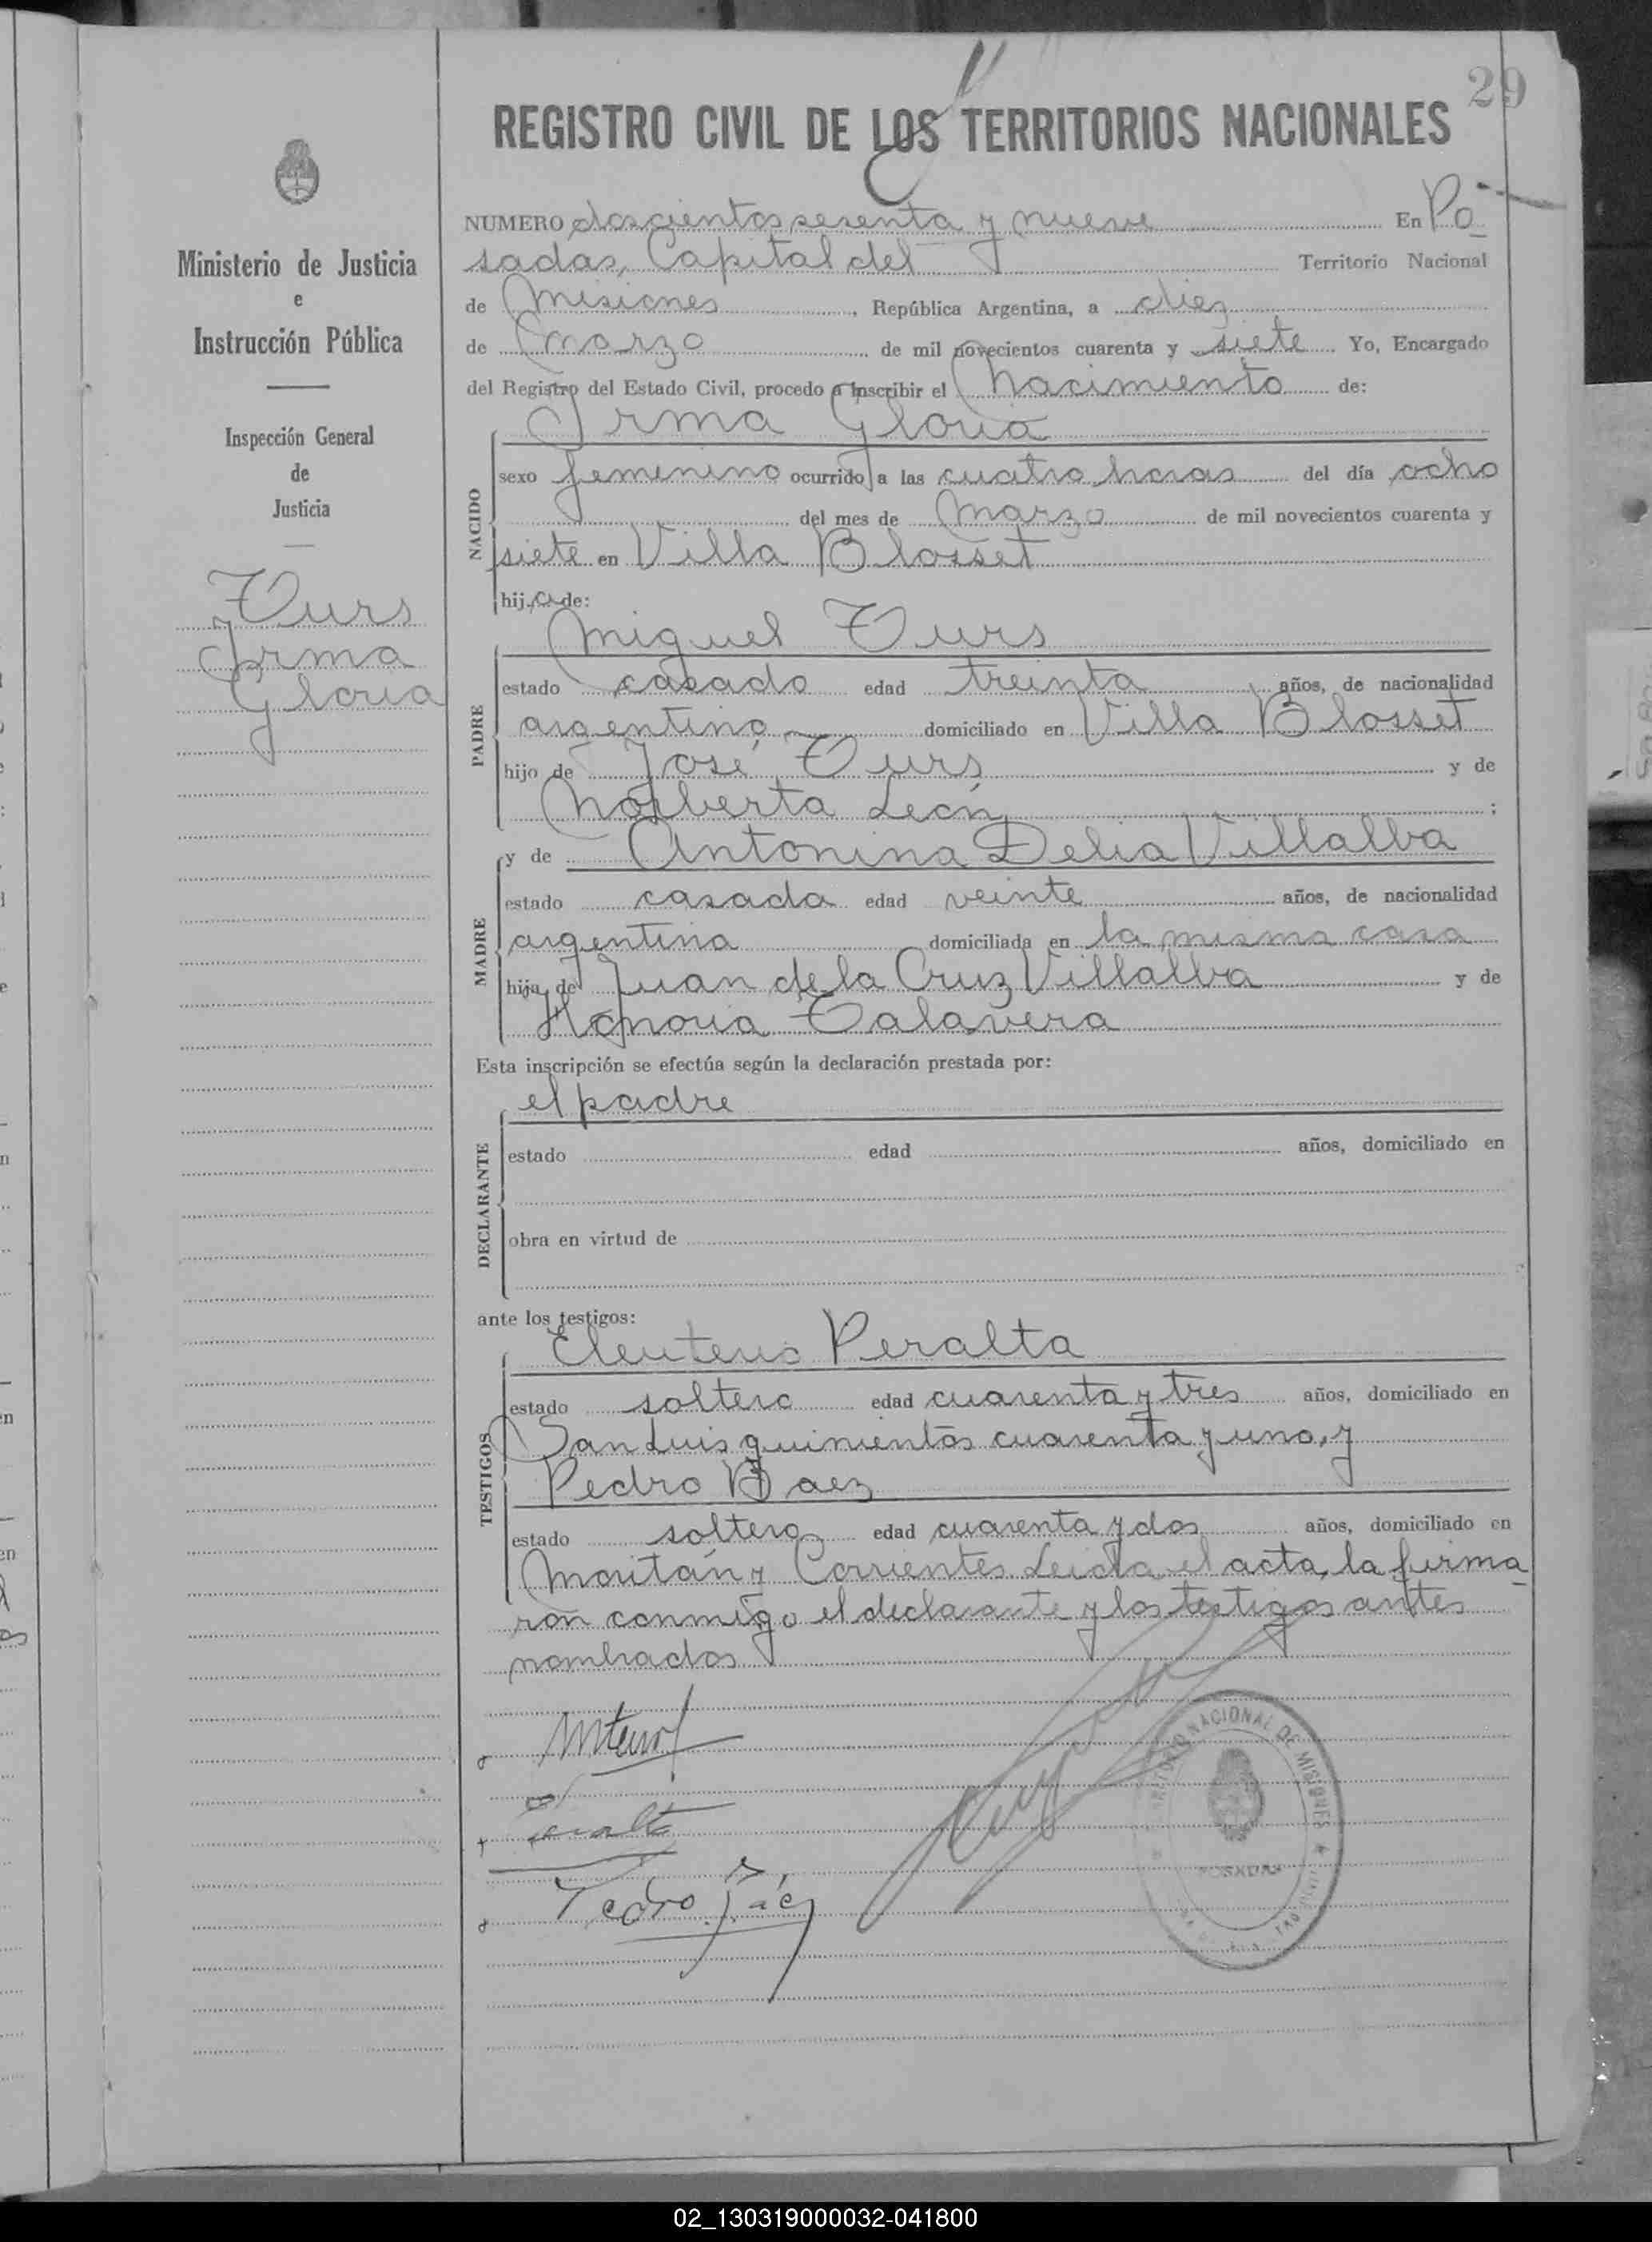 29
REGISTRO CIVIL DE LOS TERRITORIOS NACIONALES
Ministerio de Justicia
e
Instrucción Pública
Inspección General
de
Justicia
Turs
Irma
Gloria
NUMERO doscientos sesenta y nueve En Po
sadas, Capital del Territorio Nacional
de Misiones, República Argentina, a diez
de Marzo de mil novecientos cuarenta y siete Yo, Encargado
del Registro del Estado Civil, procedo a inscribir el Nacimiento de:
Irma Gloria
NACIDO
sexo femenino ocurrido a las cuatro horas del día ocho
del mes de Marzo de mil novecientos cuarenta y
siete en Villa Blosset
hija de:
Miguel Turs
PADRE
estado casado edad treinta años, de nacionalidad
argentino domiciliado en Villa Blosset
hijo de José Turs y de
Norberta León ;
MADRE
y de Antonina Delia Villalba
estado casada edad veinte años, de nacionalidad
argentina domiciliada en la misma casa
hija de Juan de la Cruz Villalba y de
Honoria Talavera
Esta inscripción se efectúa según la declaración prestada por:
el padre
DECLARANTE
estado edad años, domiciliado en
obra en virtud de
ante los testigos:
Eleuterio Peralta
TESTIGOS
estado soltero edad cuarenta y tres años, domiciliado en
San Luis quinientos cuarenta y uno, y
Pedro Baez
estado soltero edad cuarenta y dos años, domiciliado en
Moritán y Corrientes. Leida el acta, la firma
ron conmigo el declarante y los testigos antes
nombrados
Peralta
Pedro Báez
NACIONAL DE MISIONES
POSADAS
02_130319000032-041800